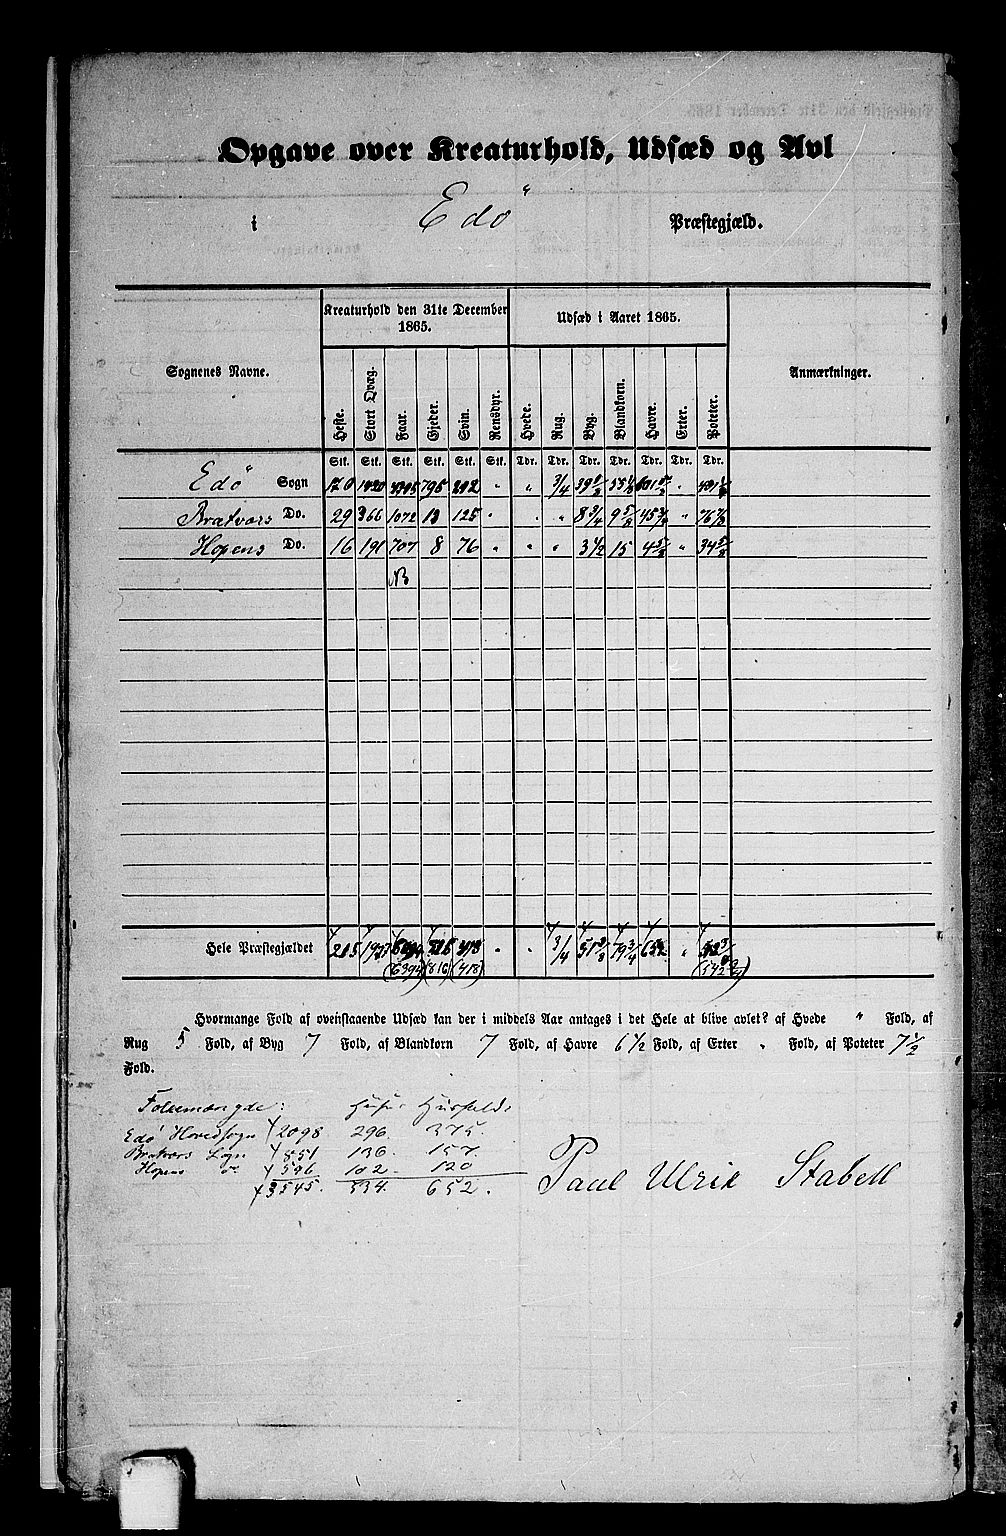 Opgave over Kreaturhold, Udsæd og Avl
i Edö Præstegjæld.
Sognenes Navne. Kreaturhold den 31te December 1865. Udsæd i Aaret 1865. Anmærkninger.
Heste. Stort Qvæg. Faar. Gjeder. Svin. Rensdyr. Hvede. Rug. Byg. Blandkorn. Havre. Erter. Poteter.
Stk. Stk. Stk. Stk. Stk. Stk. Tdr. Tdr. Tdr. Tdr. Tdr. Tdr. Tdr.
Edö Sogn 170 1420 795 " " 3/4 "
Bratværs Do. 29 366 1072 13 125 " " " 8 3/4 9 5/8 "
Hopens Do. 16 191 707 8 76 " " " 3 1/2 15 "
NB
Hele Præstegjældet 215 1977 " " 3/4 "
(6394) (816) (418) (542 3/4)
Hvormange Fold af ovenstaaende Udsæd kan der i middels Aar antages i det Hele at blive avlet? af Hvede " Fold, af
Rug 5 Fold, af Byg 7 Fold, af Blandkorn 7 Fold, af Havre 6 1/2 Fold, af Erter " Fold, af Poteter 7 1/2
Fold.
Folkemængde: Huse Husholds
Edö Hovedsogn 2098 296. 375.
Bratværs Sogn 851 136. 157.
Hopens do 596 102 120
3545. 534. 652.
Paul Ulrik Stabell